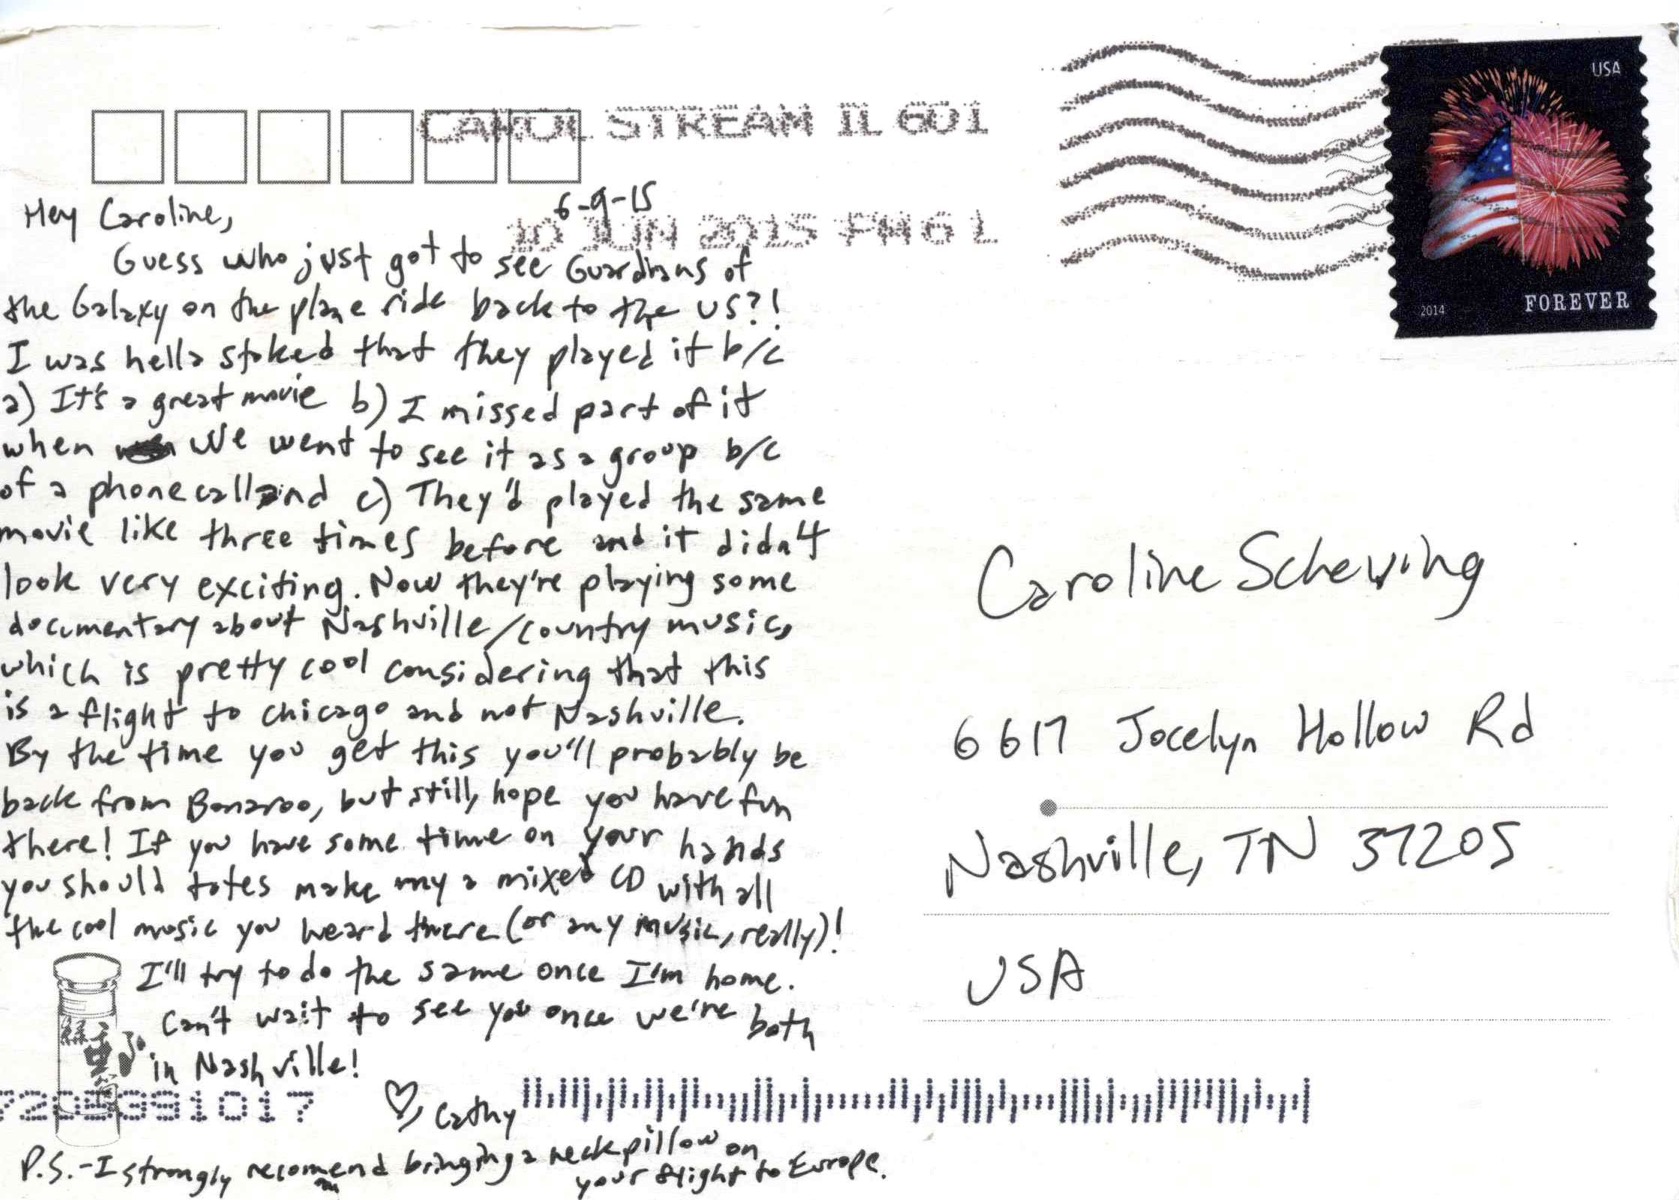 CAROL STREAM IL 601
10 JUN 2015 PM 6 L
USA
2014
FOREVER
6-9-15
Hey Caroline,
Guess who just got to see Guardians of
the Galaxy on the plane ride back to the US?!
I was hella stoked that they played it b/c
a) It's a great movie b) I missed part of it
when we went to see it as a group b/c
of a phone call and c) They'd played the same
movie like three times before and it didn't
look very exciting. Now they're playing some
documentary about Nashville/country music,
which is pretty cool considering that this
is a flight to Chicago and not Nashville.
By the time you get this you'll probably be
back from Bonaroo, but still, hope you have fun
there! If you have some time on your hands
you should totes make my a mixed CD with all
the cool music you heard there (or any music, really)!
I'll try to do the same once I'm home.
Can't wait to see you once we're both
in Nashville!
♡, Cathy
P.S. - I strongly recommend bringing a neck pillow on
your flight to Europe.
Caroline Scheving
6617 Jocelyn Hollow Rd
Nashville, TN 37205
USA